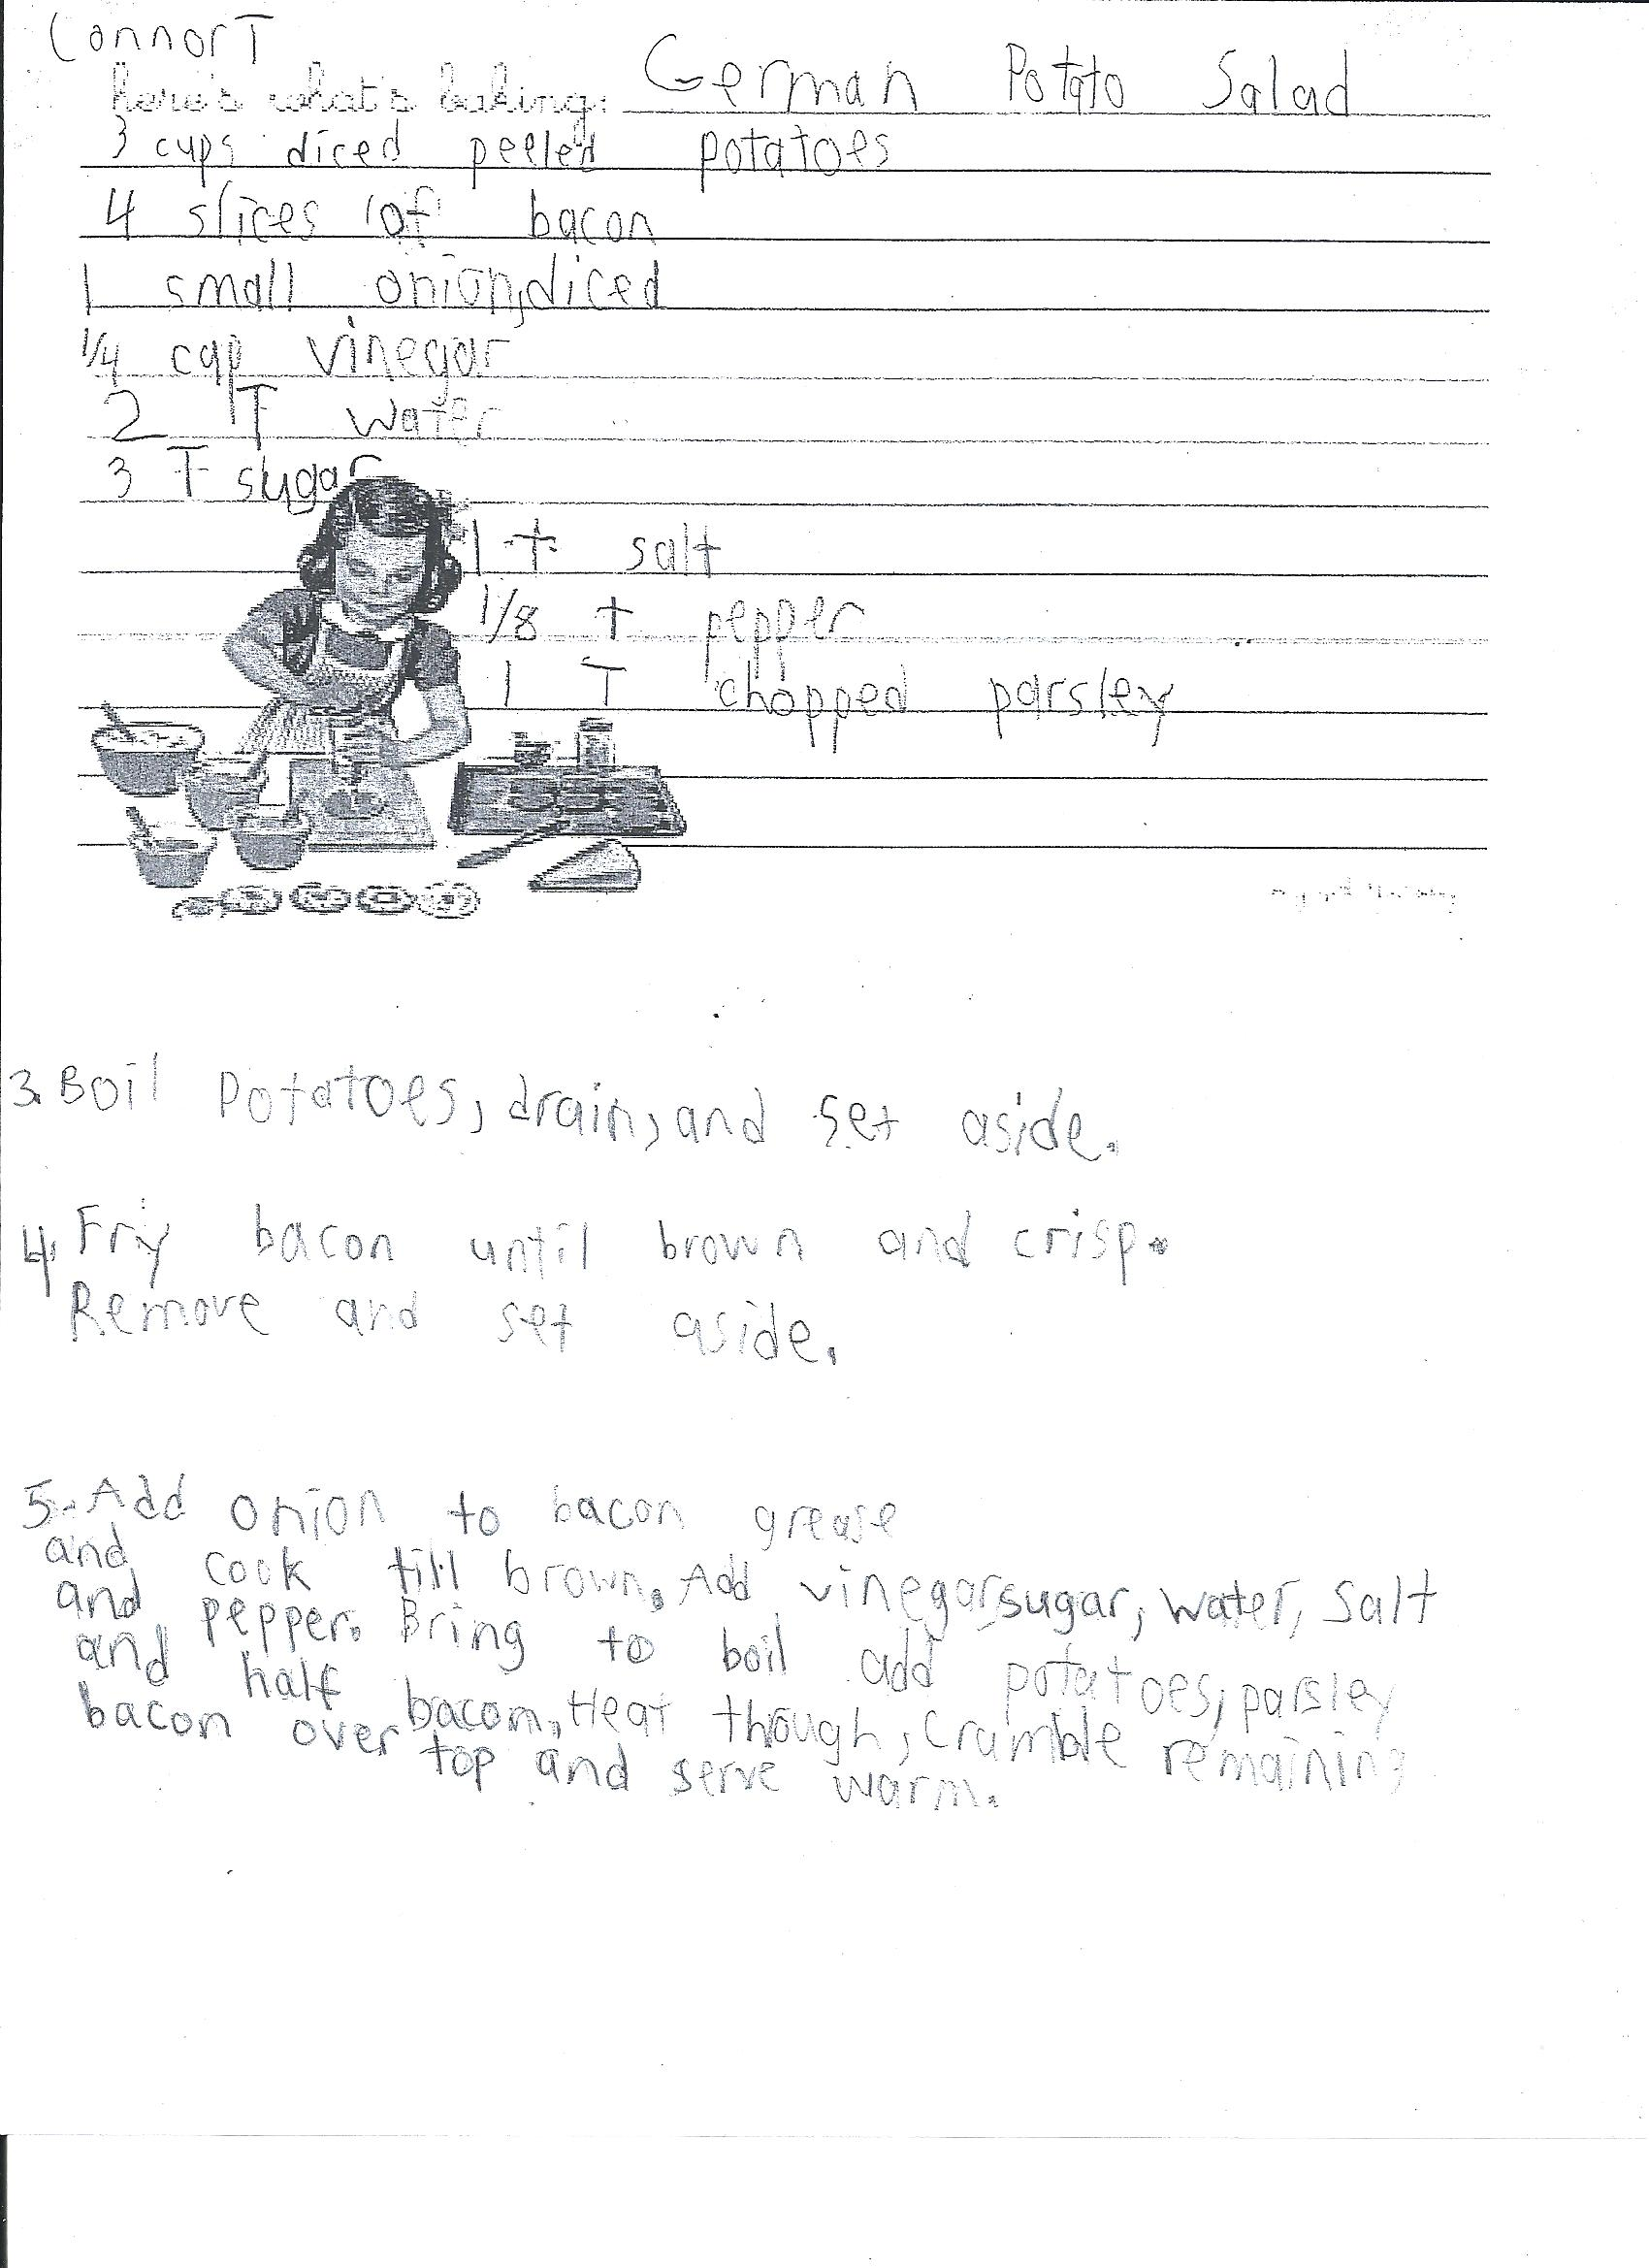 Connor T
here's what's baking: German Potato Salad
3 cups diced peeled potatoes
4 slices of bacon
1 small onion, diced
1/4 cup vinegar
2 T water
3 T sugar
1 t salt
1/8 t pepper
1 T chopped parsley
3. Boil potatoes, drain, and set aside.
4. Fry bacon until brown and crisp.
Remove and set aside.
5. Add onion to bacon grease
and cook till brown. Add vinegar, sugar, water, salt
and pepper. Bring to boil add potatoes, parsley
and half bacon. Heat though, crumble remaining
bacon over top and serve warm.